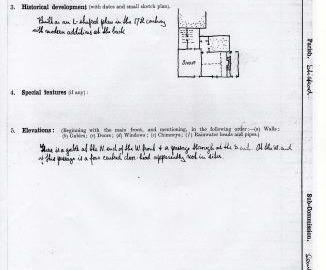 3. Historical development (with dates and small sketch plan).
Built as an L-shaped plan in the 17th century
with modern additions at the back
4. Special features (if any):
5. Elevations: (Beginning with the main front, and mentioning, in the following order:—(a) Walls;
(b) Gables; (c) Doors; (d) Windows; (e) Chimneys; (f) Rainwater heads and pipes.)
There is a gable at the N. end of the W. front & a passage through at the S. end. At the W. end
of this passage is a four centred door-head apparently not in situ.
Parish.
Sub-Commission.